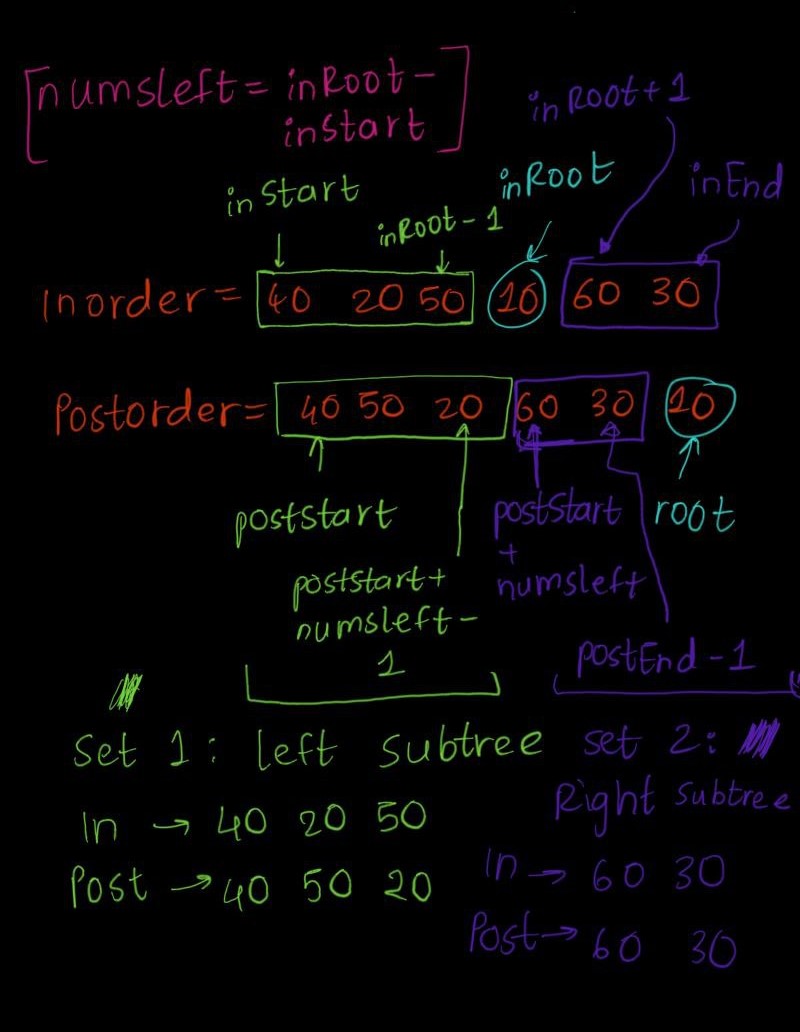 [numsleft = inRoot -
inStart]
inRoot+1
inStart
inRoot
inEnd
inRoot-1
Inorder = 40 20 50 10 60 30
Postorder = 40 50 20 60 30 10
postStart
postStart
+
numsleft
root
poststart+
numsleft-
1
postEnd-1
Set 1: left subtree
In → 40 20 50
Post → 40 50 20
set 2:
Right subtree
In → 60 30
Post → 60 30